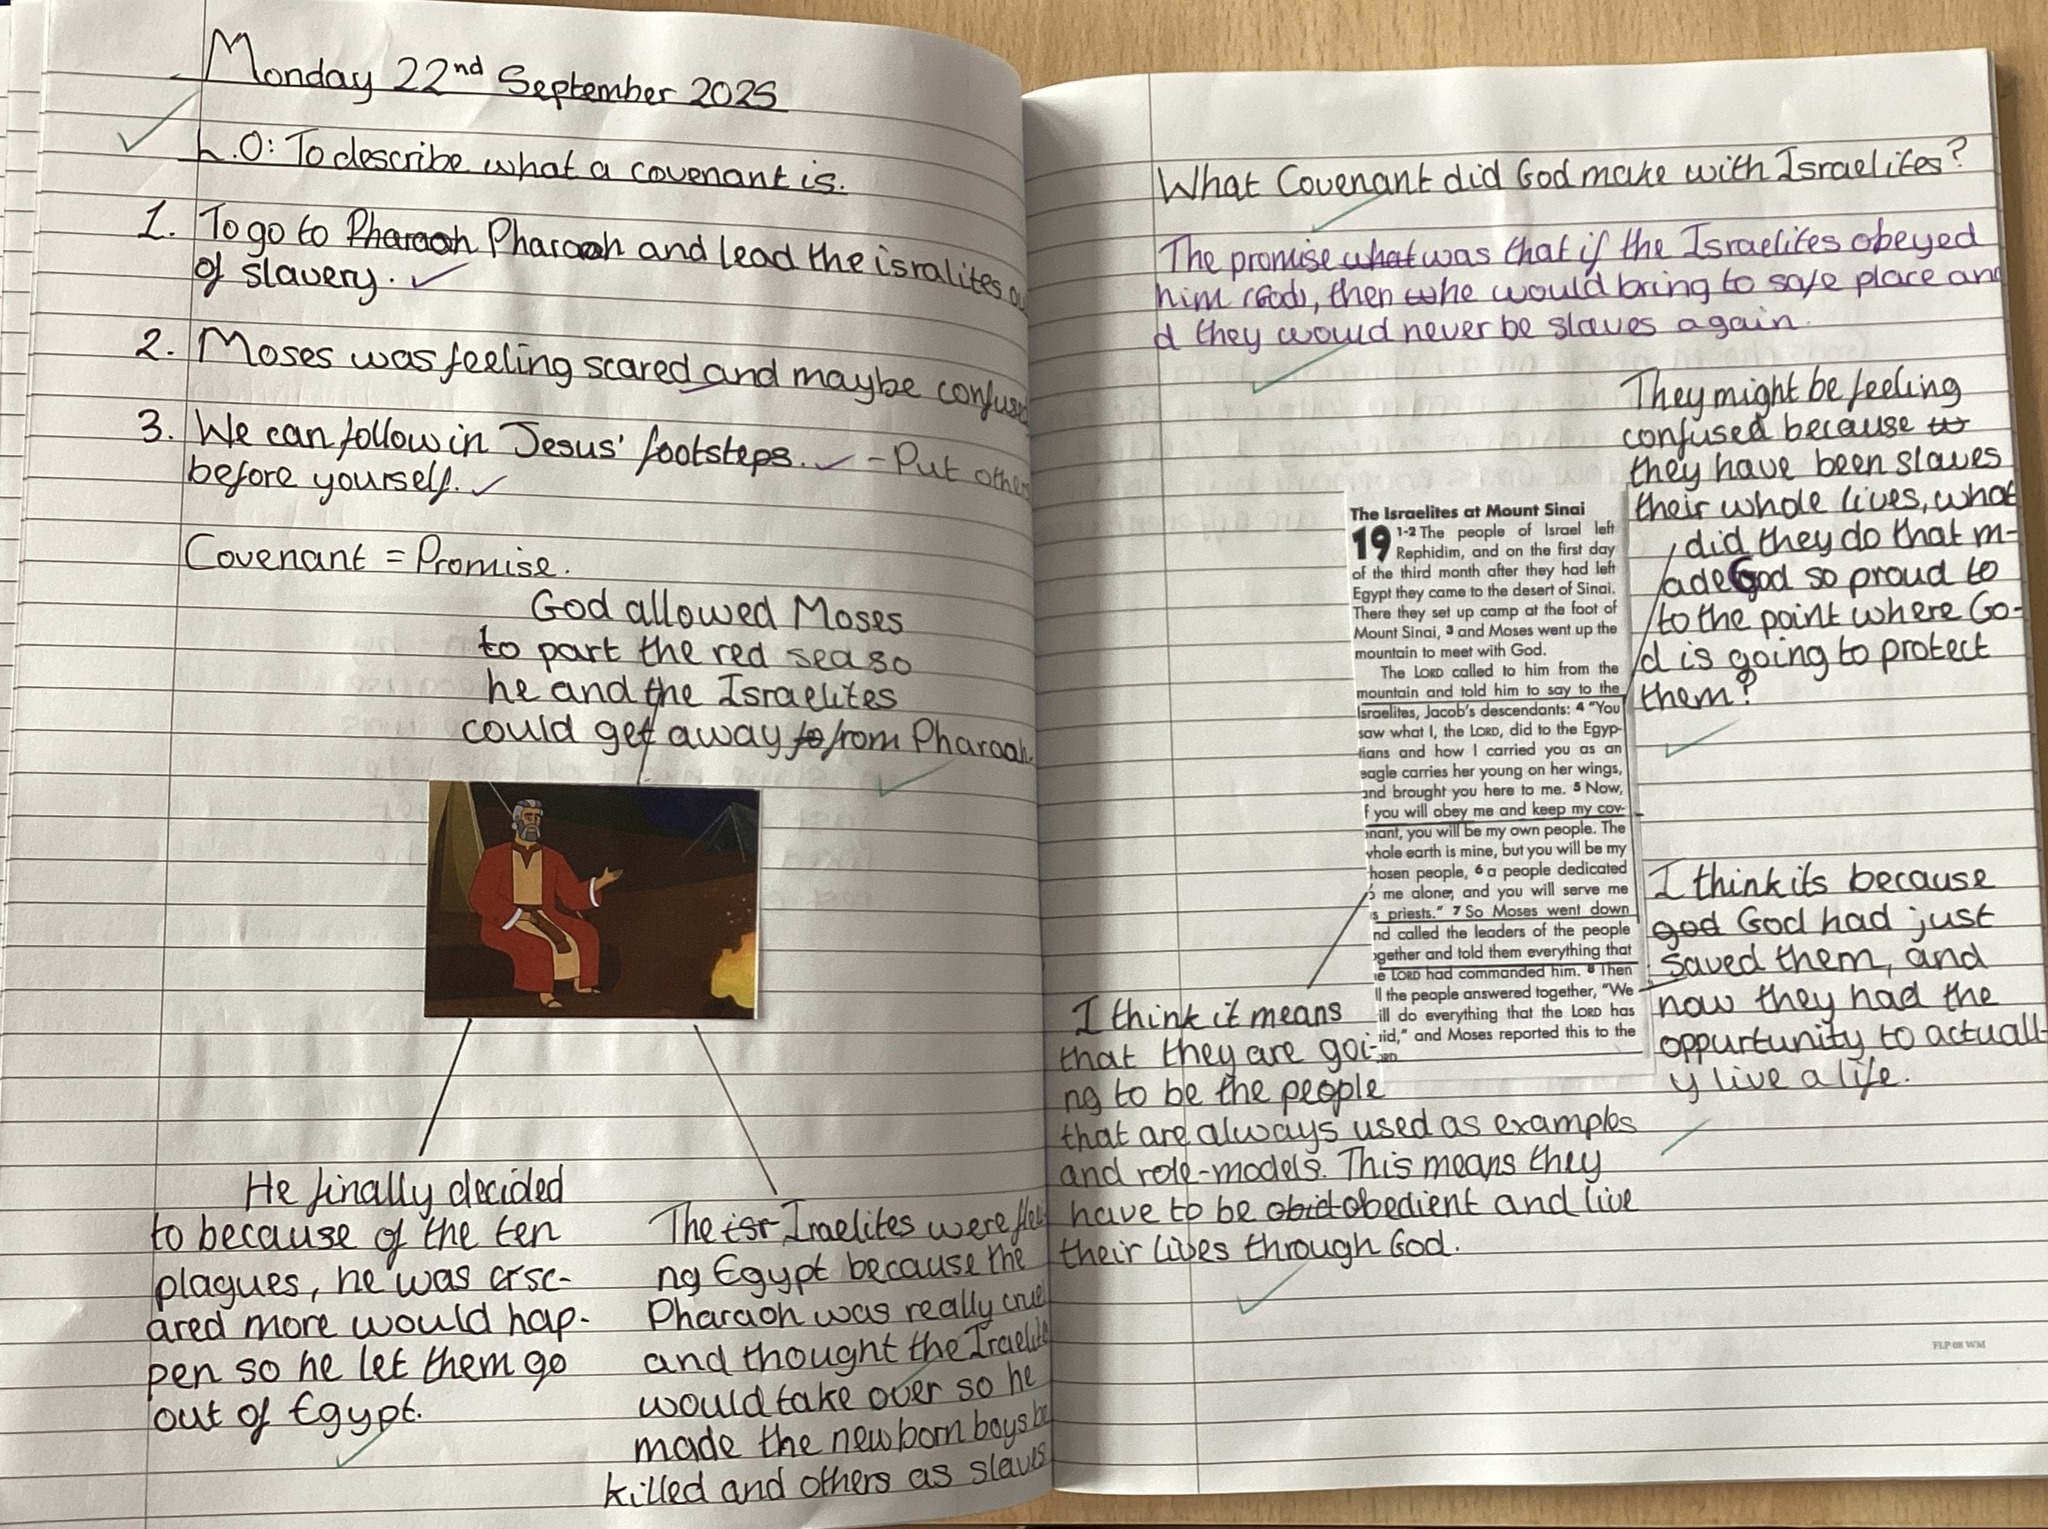 Monday 22nd September 2025
L.O: To describe what a covenant is.
1. To go to Pharaoh Pharaoh and lead the isralites
of slavery.
2. Moses was feeling scared and maybe confused
3. We can follow in Jesus' footsteps. - Put others
before yourself.
Covenant = Promise.
God allowed Moses
to part the red sea so
he and the Israelites
could get away to from Pharaoh.
He finally decided
to because of the ten
plagues, he was sc-
ared more would hap-
pen so he let them go
out of Egypt.
The isr Iraelites were
ng Egypt because the
Pharaoh was really cruel
and thought the Iraelite
would take over so he
made the newborn boys be
killed and others as slaves
What Covenant did God make with Israelites?
The promise what was that if the Israelites obeyed
him (God), then he would bring to safe place an
d they would never be slaves again.
They might be feeling
confused because
they have been slaves
their whole lives, what
did they do that m-
ade God so proud to
to the point where Go-
d is going to protect
them?
The Israelites at Mount Sinai
19 1-2 The people of Israel left
Rephidim, and on the first day
of the third month after they had left
Egypt they came to the desert of Sinai.
There they set up camp at the foot of
Mount Sinai, 3 and Moses went up the
mountain to meet with God.
The LORD called to him from the
mountain and told him to say to the
Israelites, Jacob's descendants: 4 "You
saw what I, the LORD, did to the Egyp-
tians and how I carried you as an
eagle carries her young on her wings,
and brought you here to me. 5 Now,
f you will obey me and keep my cov-
nant, you will be my own people. The
whole earth is mine, but you will be my
hosen people, 6 a people dedicated
o me alone, and you will serve me
s priests." 7 So Moses went down
nd called the leaders of the people
ogether and told them everything that
e LORD had commanded him. 8 Then
ll the people answered together, "We
ill do everything that the LORD has
aid," and Moses reported this to the
ORD
I think its because
god God had just
saved them, and
now they had the
oppurtunity to actuall-
y live a life.
I think it means
that they are goi-
ng to be the people
that are always used as examples
and role-models. This means they
have to be obid obedient and live
their lives through God.
FLP 08 WM